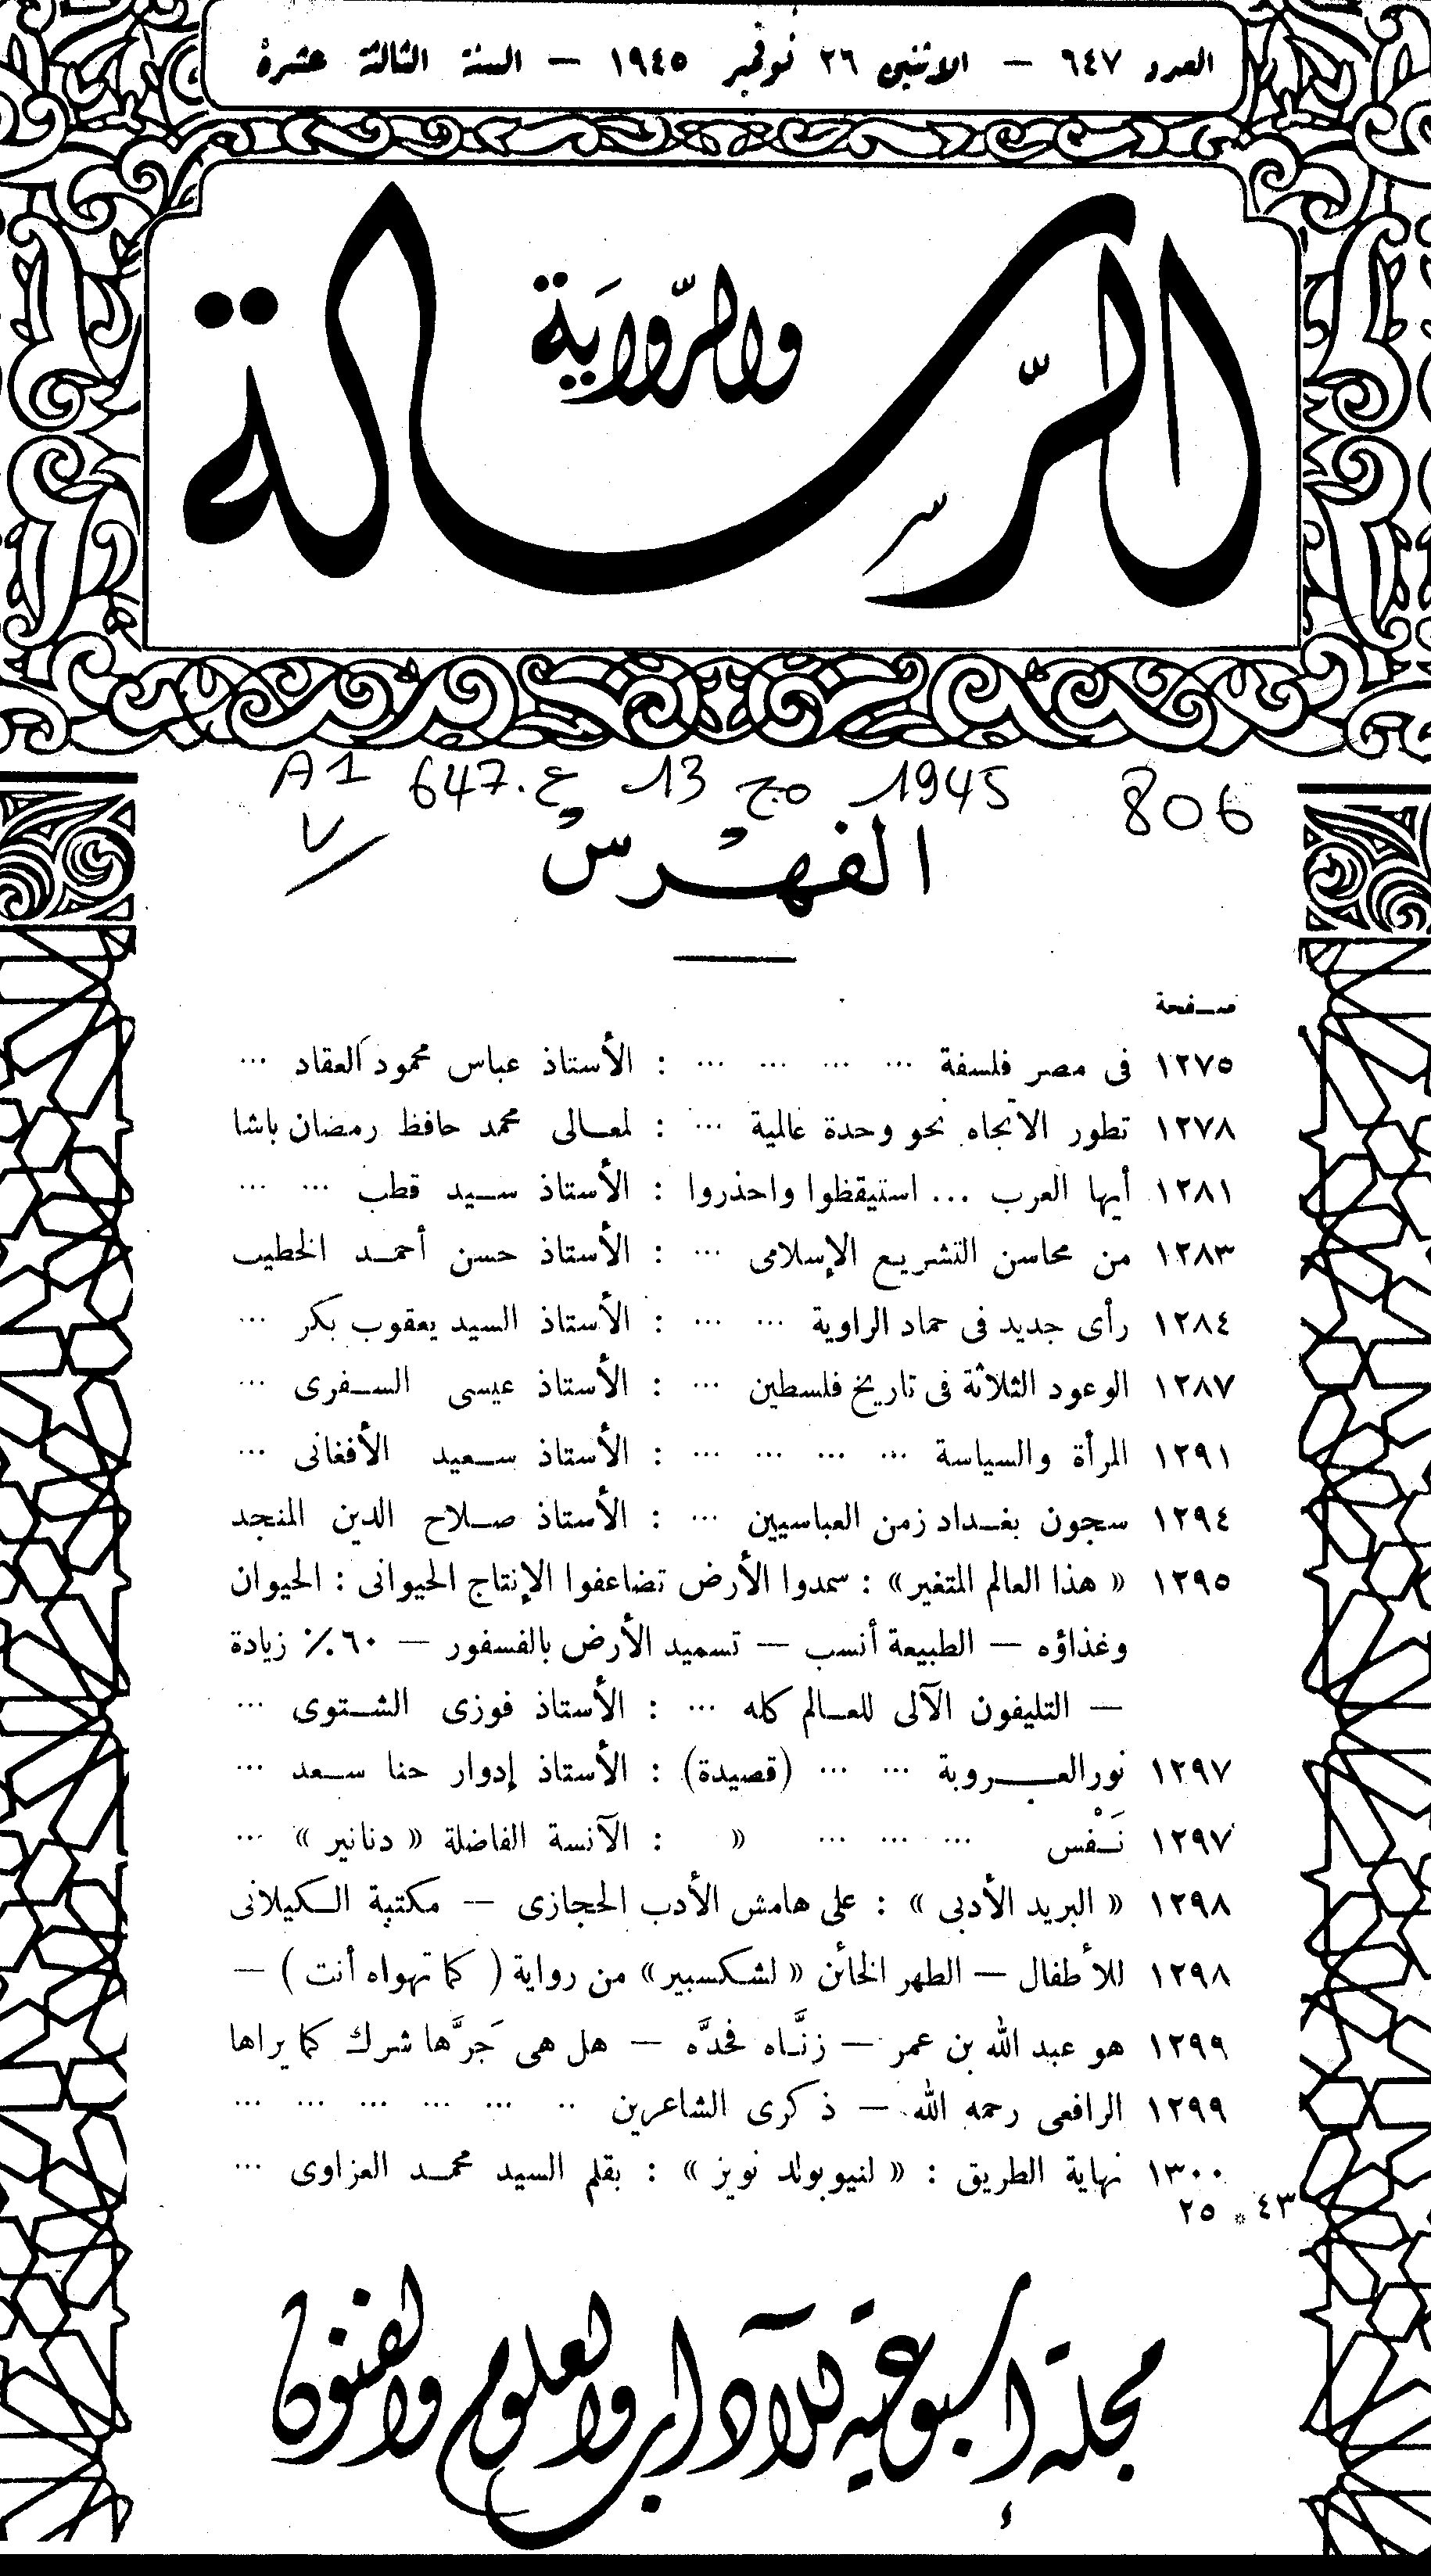 العدد ٦٤٧ — الاثنين ٢٦ نوفمبر ١٩٤٥ — السنة الثالثة عشرة
الرسالة
والرّواية
806 1945 مج 13 ع. 647 A1
الفهرس
صفحة
١٢٧٥ فى مصر فلسفة ... ... ... ... : الأستاذ عباس محمود العقاد ...
١٢٧٨ تطور الاتجاه نحو وحدة عالمية ... : لمعالى محمد حافظ رمضان باشا
١٢٨١ أيها العرب ... استيقظوا واحذروا : الأستاذ سيد قطب ... ...
١٢٨٣ من محاسن التشريع الإسلامى ... : الأستاذ حسن أحمد الخطيب
١٢٨٤ رأى جديد فى حماد الراوية ... ... : الأستاذ السيد يعقوب بكر ...
١٢٨٧ الوعود الثلاثة فى تاريخ فلسطين ... : الأستاذ عيسى السفرى ...
١٢٩١ المرأة والسياسة ... ... ... ... : الأستاذ سعيد الأفغانى ...
١٢٩٤ سجون بغداد زمن العباسيين ... : الأستاذ صلاح الدين المنجد
١٢٩٥ « هذا العالم المتغير» : سمدوا الأرض تضاعفوا الإنتاج الحيوانى : الحيوان
وغذاؤه — الطبيعة أنسب — تسميد الأرض بالفسفور — ٦٠٪ زيادة
— التليفون الآلى للعالم كله ... : الأستاذ فوزى الشتوى ...
١٢٩٧ نور العروبة ... ... ... (قصيدة) : الأستاذ إدوار حنا سعد ...
١٢٩٧ نَفْس ... ... ... » : الآنسة الفاضلة « دنانير » ...
١٢٩٨ « البريد الأدبى » : على هامش الأدب الحجازى — مكتبة الكيلانى
١٢٩٨ للأطفال — الطهر الخائن « لشكسبير» من رواية ( كما تهواه أنت ) —
١٢٩٩ هو عبد الله بن عمر — زنَّاه فحدَّه — هل هى جَرَّها شرك كما يراها
١٢٩٩ الرافعى رحمه الله — ذكرى الشاعرين .. ... ... ... ... ...
١٣٠٠ نهاية الطريق : « لنيوبولد نويز » : بقلم السيد محمد العزاوى ...
٤٣ * ٢٥
مجلة أسبوعية للآداب والعلوم والفنون